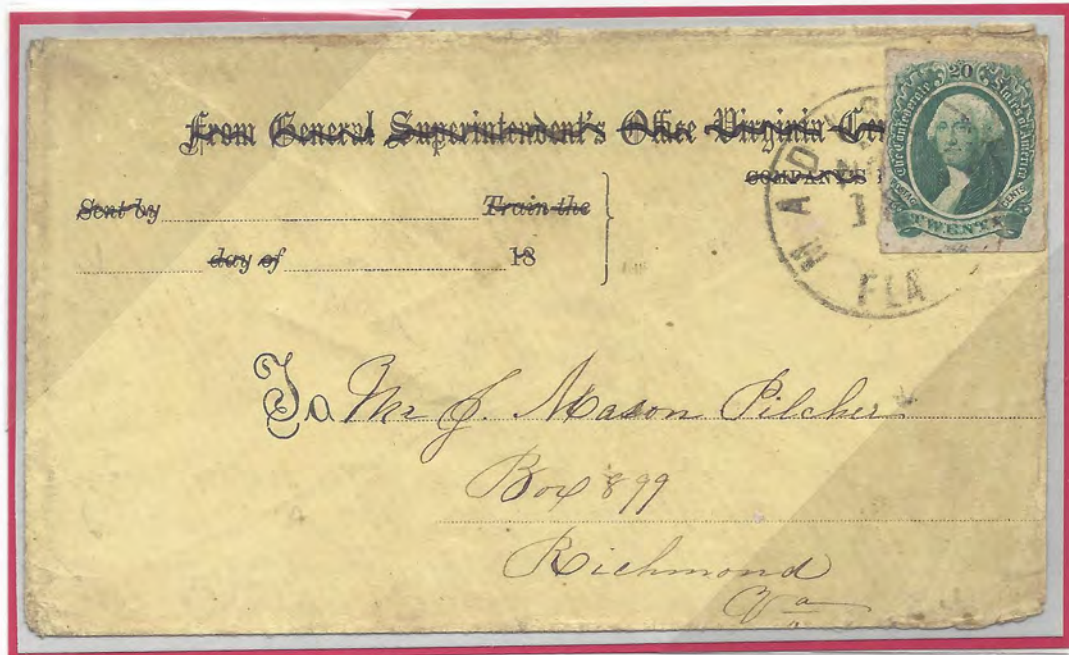 From General Superintendent's Office Virginia Cen
COMPANY'S
Sent by Train the
day of 18
20
The Confederate States of America
POSTAGE CENTS
TWENTY
MADIS
1
FLA
To Mr J. Mason Pilcher
Box 899
Richmond
Va